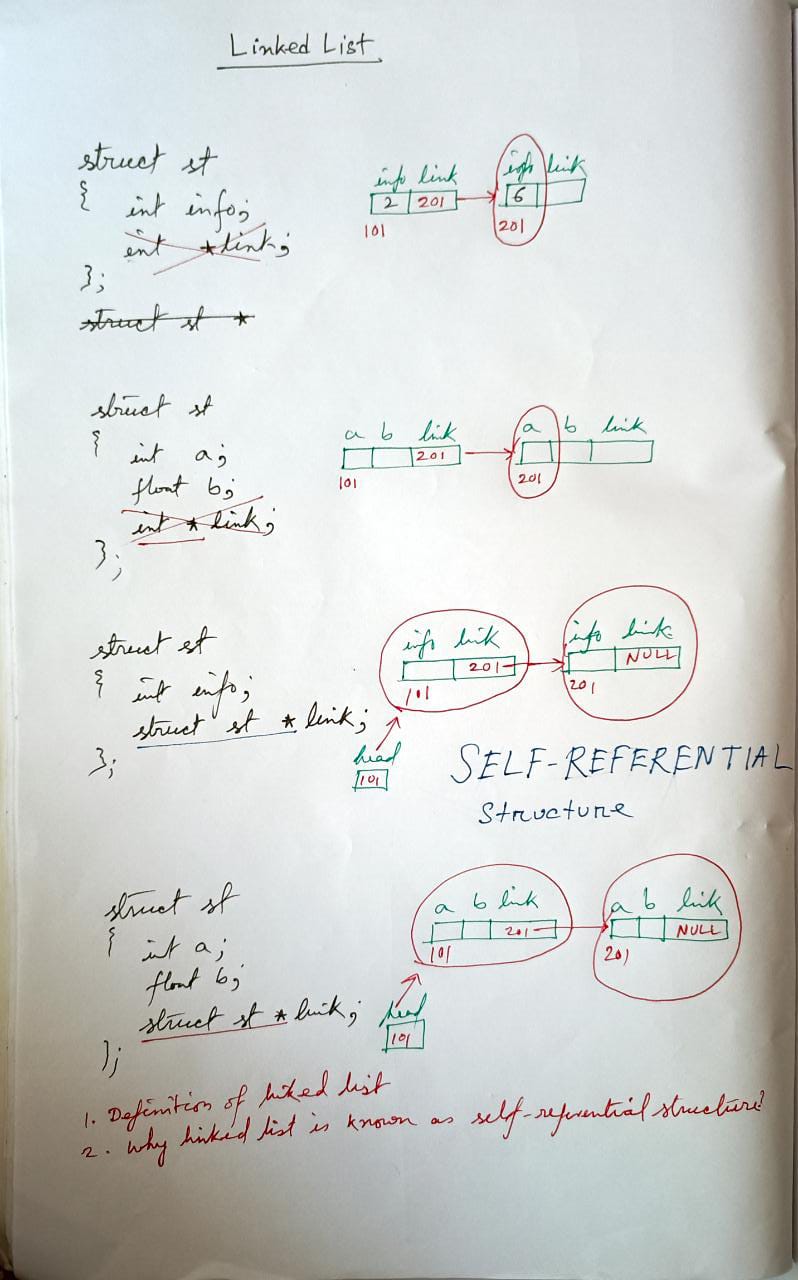 Linked List
struct st
{ int info;
int *link;
};
struct st *
info link info link
2 201 6
101 201
struct st
{ int a;
float b;
int * link;
};
a b link a b link
201
101 201
struct st
{ int info;
struct st * link;
};
info link info link
201 NULL
101 201
head
101
SELF-REFERENTIAL
Structure
struct st
{ int a;
float b;
struct st * link;
};
a b link a b link
201 NULL
101 201
head
101
1. Definition of linked list
2. Why linked list is known as self-referential structure?